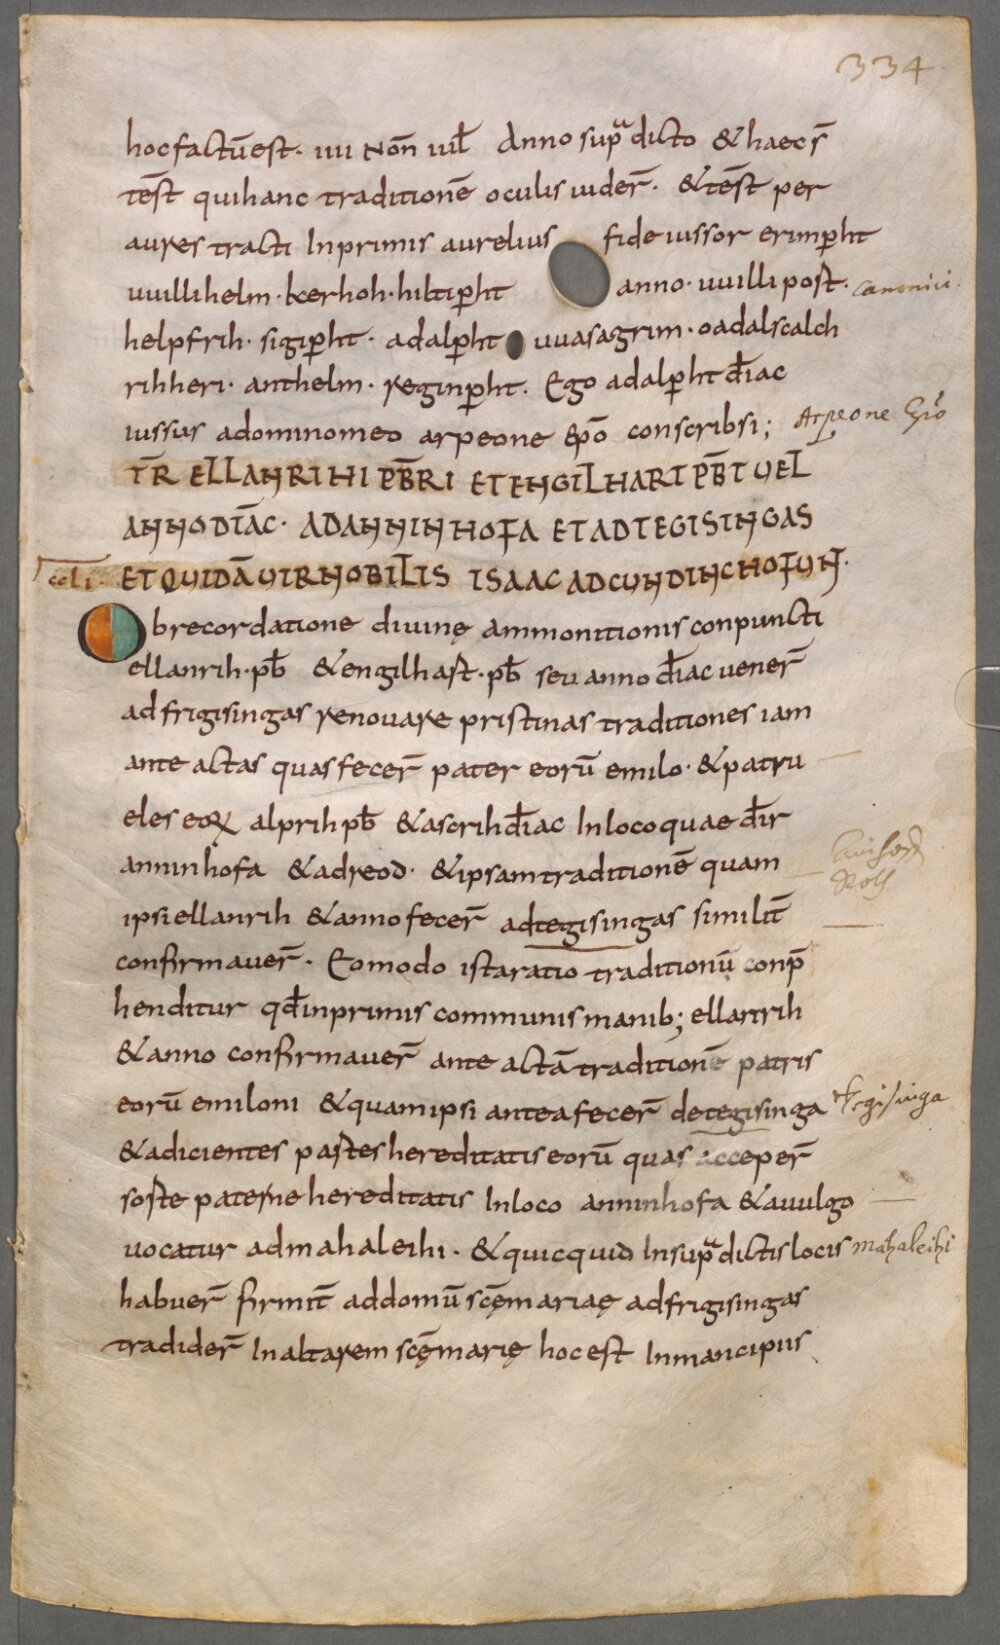 334
hoc factū est· iiii Nōn iul̄ Anno sup̄ᵃdicto & haec s̄
tēst qui hanc traditionē oculis uider̄· & tēst per
aures tracti In primis aurelius fideiussor erimp̱ht
uuillihelm· kerhoh· hiltip̱ht anno· uuilli post· canonici·
helpfrih· sigip̱ht· adalp̱ht uuasagrim· oadalscalch
rihheri· anthelm· reginp̱ht· Ego adalp̱ht điac
iussus a domino meo arpeone ep̄o conscribsi; Arpeone
TR̄ ELLANRIHI PB̄RI ET ENGILHARTI PB̄T UEL
ANNO DIĀC· AD ANNINHOFA ET AD TEGISINGAS
ccli ET QUIDĀ UIR NOBILIS ISAAC AD CUNDINCHOFUN·
Ob recordatione diuinę ammonitionis conpuncti
ellanrih· pb̄ & engilhart· pb̄ seu anno điac uener̄
ad frigisingas renouare pristinas traditiones iam
ante actas quas fecer̄ pater eorū emilo· & patru
eles eoꝝ alprih pb̄ & ascrih điac In loco quae đir
anninhofa & ad reod· & ipsam traditionē quam
ipsi ellanrih & anno fecer̄ ad tegisingas similit̄
confirmauer̄· Eo modo ista ratio traditionū conp̄
henditur qđ inprimis communis manib; ellanrih
& anno confirmauer̄ ante actā traditionē patris
eorū emiloni & quam ipsi antea fecer̄ de tegisinga Tegisinga
& adicientes partes hereditatis eorū quas acceper̄
sorte paterne hereditatis In loco anninhofa & a uulgo
uocatur ad mahaleihi· & quicquid In sup̄ᵃdictis locis mahaleihi
habuer̄ firmit̄ ad domū scę̄ mariaę ad frigisingas
tradider̄ In altarem scę̄ marię hoc est In mancipiis